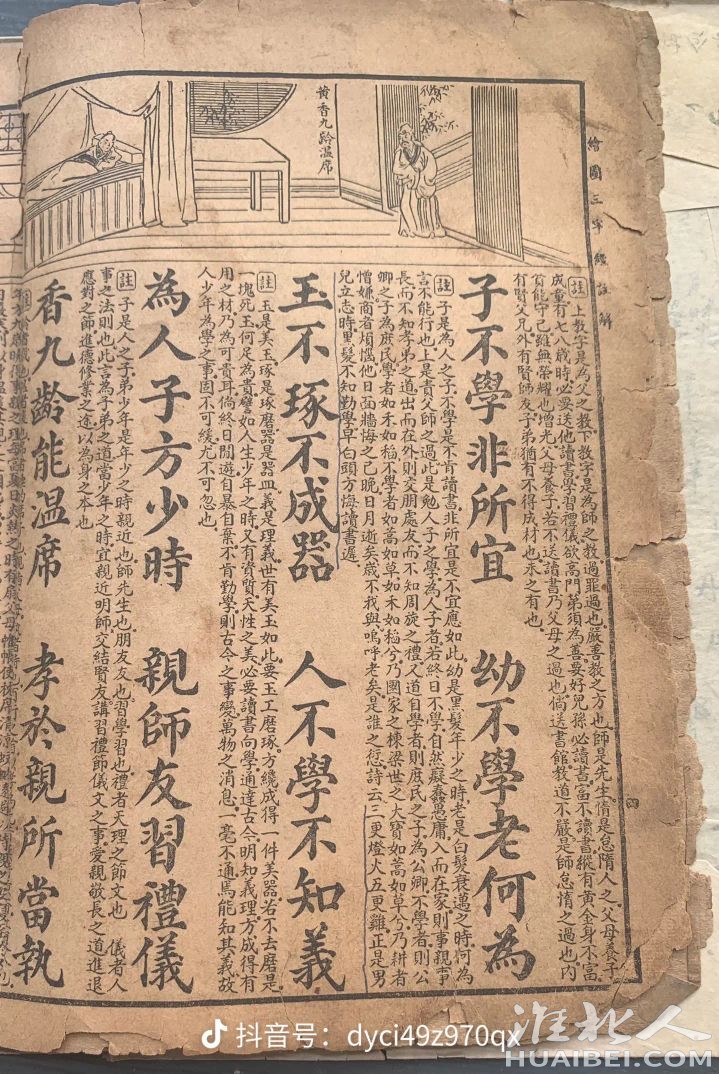 繪圖三字經註解
黃香九齡溫席
註 上教字是為父之教下教字是為師之教過罪過也嚴善教之方也師是先生惰是怠隋人之父母養子
成童有七八歲時必要送他讀書學習禮儀欲高門第須為善要好兒孫必讀書富不讀書縱有黃金身不富
貧能守己雖無榮耀也增光父母養子若不送讀書乃父母之過也倘送書館教道不嚴是師怠惰之過也內
有賢父兄外有賢師友子弟猶有不得成材也未之有也
子不學非所宜 幼不學老何為
註 子是為人之子不學是不肯讀書非所宜是不宜應如此幼是黑髮年少之時老是白髮衰邁之時何為
言不能行也上是責父師之過此是勉人子之學為人子者若終日不學自然癡蠢愚庸入而在家則事親事
長而不知孝弟之道出而在外則交朋處友而不知周旋之禮人道自學者則庶民之子為公卿不學者則公
卿之子為庶民學者如禾如稻不學者如蒿如草如禾如稻兮乃國家之棟梁世之大寶如蒿如草兮乃耕者
憎嫌商者煩惱他日面牆悔之已晚日月逝矣歲不我與嗚呼老矣是誰之愆詩云三更燈火五更雞正是男
兒立志時黑髮不知勤學早白頭方悔讀書遲
玉不琢不成器 人不學不知義
註 玉是美玉琢是琢磨器是器皿義是理義世有美玉如此要玉工磨琢方纔成得一件美器若不去磨是
一塊死玉何足為貴譬如人生少年之時又有資質天性之美必要讀書向學通達古今明知義理方成得有
用之材乃為可貴耳倘終日閒遊自暴自棄不肯勤學則古今之事變萬物之消息一毫不通焉能知其義故
人少年為學之事固不可緩尤不可忽也
為人子方少時 親師友習禮儀
註 子是人之子弟少年是年少之時親近也師先生也朋友友也習學習也禮者天理之節文也 儀者人
事之法則也此言為子弟之道當少年之時宜親近明師交結賢友講習禮節儀文之事愛親敬長之道進退
應對之師進德修業之迹以為身之本也
香九齡能溫席 孝於親所當執
抖音号：dyci49z970qx
淮北人
HUAIBEI.COM